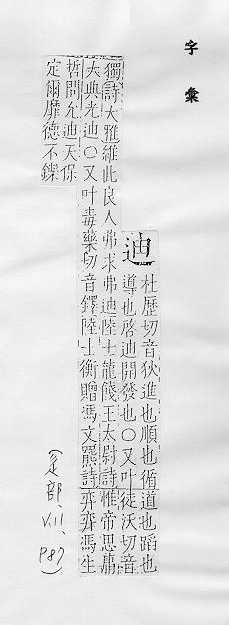 字彙
迪 杜歷切音狄進也順也循道也蹈也
導也啓迪開發也〇又叶徒沃切音
獨詩大雅維此良人弗求弗迪陸士龍餞王太尉詩惟帝思勗
大典光迪〇又叶毒藥切音鐸陸士衡贈馮文羆詩弈弈馮生
哲問允迪天保
定爾靡德不鑠
(辵部、V.11, P87)